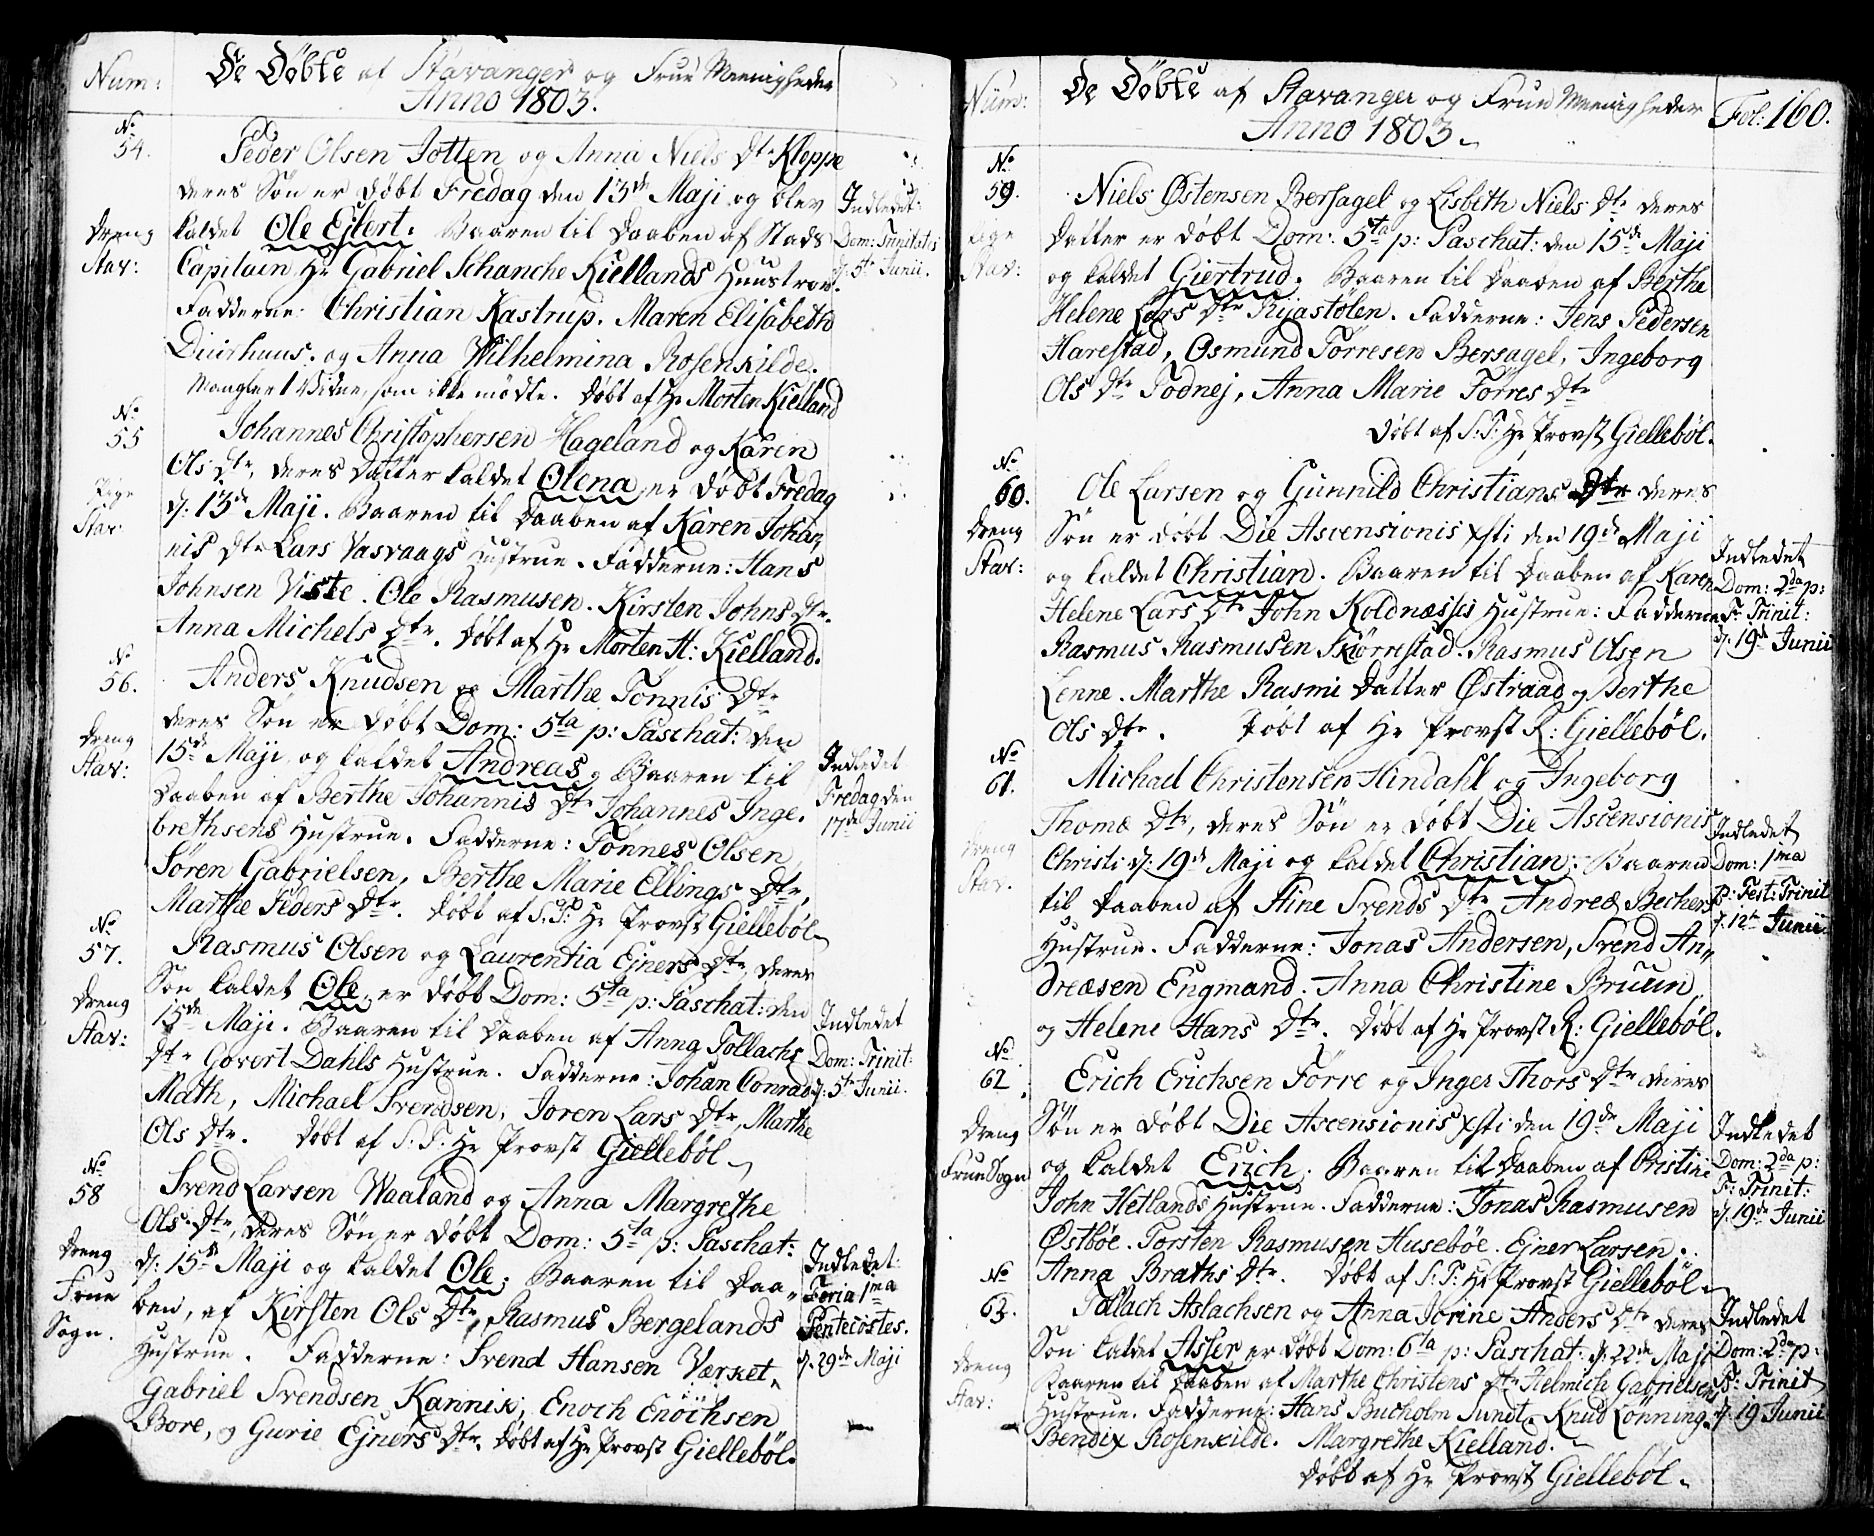 Num:
De Döbte af Stavanger og Frue Meenigheder
Anno 1803.
No
54.
Peder Olsen Jotten og Anna Niels Dtr Kleppe
deres Søn er døbt Fredag den 13de Maji og blev
Dreng
Stav:
kaldet Ole Ejlert. Baaren til Daaben af Stads
Capitain Hr Gabriel Schanche Kiellands Huustroe.
Fadderne: Christian Kastrup. Maren Elisabeth
Duirhuus. og Anna Wilhelmina Rosenkilde.
Mangler 1 Vidne, som ikke mödte. Døbt af Hr Morten Kielland
Indledet:
Dom: Trinitatis
d: 5te Junii.
No
55
Johannes Christophersen Hageland og Karen
Ols Dtr, deres Datter kaldet Olena, er døbt Fredag
Pige
Stav:
d: 13de Maji. Baaren til Daaben af Karen Johan
nis Dtr Lars Vasvaags Hustrue. Fadderne: Hans
Johnsen Viste. Ole Rasmusen. Kirsten Johns Dtr.
Anna Michels Dtr. Døbt af Hr Morten H: Kielland.
No
56.
Anders Knudsen og Marthe Tönnis Dtr
deres Søn er døbt Dom: 5ta p: Paschat: den
Dreng
Stav:
15de Maji og kaldet Andreas, Baaren til
Daaben af Berthe Johannis Dtr Johannes Inge-
brethsens Hustrue. Fadderne: Tönnes Olsen,
Søren Gabrielsen, Berthe Marie Ellings Dtr,
Marthe Peders Dtr. Døbt af S: T: Hr Provst Giellebøl
Indledet
Fredag den
17de Junii
No
57.
Rasmus Olsen og Laurentia Ejners Dtr, deres
Søn kaldet Ole, er døbt Dom: 5ta p: Paschat: den
Dreng
Stav:
15de Maji. Baaren til Daaben af Anna Tollachs
Dtr Govert Dahls Hustrue. Fadderne: Johan Conrad
Math, Michael Svendsen, Joren Lars Dtr, Marthe
Ols Dtr. Døbt af S: T: Hr Provst Giellebøl
Indledet
Dom: Trinit:
d: 5te Junii.
No
58
Svend Larsen Waaland og Anna Margrethe
Ols Dtr, deres Søn er døbt Dom: 5ta p: Paschat:
Dreng
Frue
Sogn.
d: 15de Maji og kaldet Ole. Baaren til Daa-
ben, af Kirsten Ols Dtr, Rasmus Bergelands
Hustrue. Fadderne: Svend Hansen Værket,
Gabriel Svendsen Kannik, Enoch Enochsen
Bore, og Gurie Ejners Dtr. Døbt af Hr Provst Giellebøl.
Indledet:
Feria 1ma
Pentecostes.
d: 29de Maji
Num:
De Döbte af Stavanger og Frue Meenigheder
Anno 1803.
Fol: 160.
No
59.
Niels Østensen Bersagel og Lisbeth Niels Dtr deres
Pige
Stav:
Datter er døbt Dom: 5ta p: Paschat: den 15de Maji
og kaldet Giertrud. Baaren til Daaben af Berthe
Helene Lars Dtr Ryastølen. Fadderne: Jens Pedersen
Harestad, Osmund Torresen Bersagel, Ingeborg
Ols Dtr Todnej, Anna Marie Torres Dtr
Døbt af S: T: Hr Provst Giellebøl.
No
60.
Ole Larsen og Gunnild Christians Dtr deres
Dreng
Stav:
Søn er døbt Die Ascensionis Xsti den 19de Maji
og kaldet Christian. Baaren til Daaben af Karen
Helene Lars Dtr John Koldnæsses Hustrue: Fadderne
Rasmus Rasmusen Skiörrestad. Rasmus Olsen
Lenne. Marthe Rasmi Datter Østraad og Berthe
Ols Dtr. Døbt af Hr Provst R: Giellebøl.
Indledet
Dom: 2da p:
F: Trinit:
d: 19de Junii
No
61.
Michael Christensen Hindahl og Ingeborg
Thomæ Dtr, deres Søn er døbt Die Ascensionis
Dreng
Stav.
Christi d: 19de Maji og kaldet Christian. Baaren
til Daaben af Stine Svends Dtr Andreæ Bechers
Hustrue. Fadderne: Jonas Andersen, Svend An-
dreæsen Engmand. Anna Christine Bruun
og Helene Hans Dtr. Døbt af Hr Provst R: Giellebøl.
Indledet
Dom: 1ma
p: Fest: Trinit
d: 12te Junii.
No
62
Erich Erichsen Förre og Inger Thors Dtr deres
Dreng
Frue Sogn
Søn er døbt Die Ascensionis Xsti den 19de Maji
og kaldet Erich. Baaren til Daaben af Cristine
John Hetlands Hustrue. Fadderne: Jonas Rasmusen
Østböe. Torsten Rasmusen Huseböe. Ejner Larsen.
Anna Braths Dtr. Døbt af S: T: Hr Provst Giellebøl
Indledet
Dom: 2da p:
F: Trinit:
d: 19de Junii
No
63.
Tollach Aslachsen og Anna Jorine Anders Dtr deres
Dreng
Stav:
Søn kaldet Asser er døbt Dom: 6ta p: Paschat: d: 22de Maji
Baaren til Daaben af Marthe Christens Dtr Helmich Gabrielsens
Hustrue. Fadderne: Hans Bucholm Sundt. Knud Lönning.
Bendix Rosenkilde. Margrethe Kielland.
Døbt af Hr Provst Giellebøl
Indledet
Dom: 2da p:
F: Trinit
d: 19 Junii